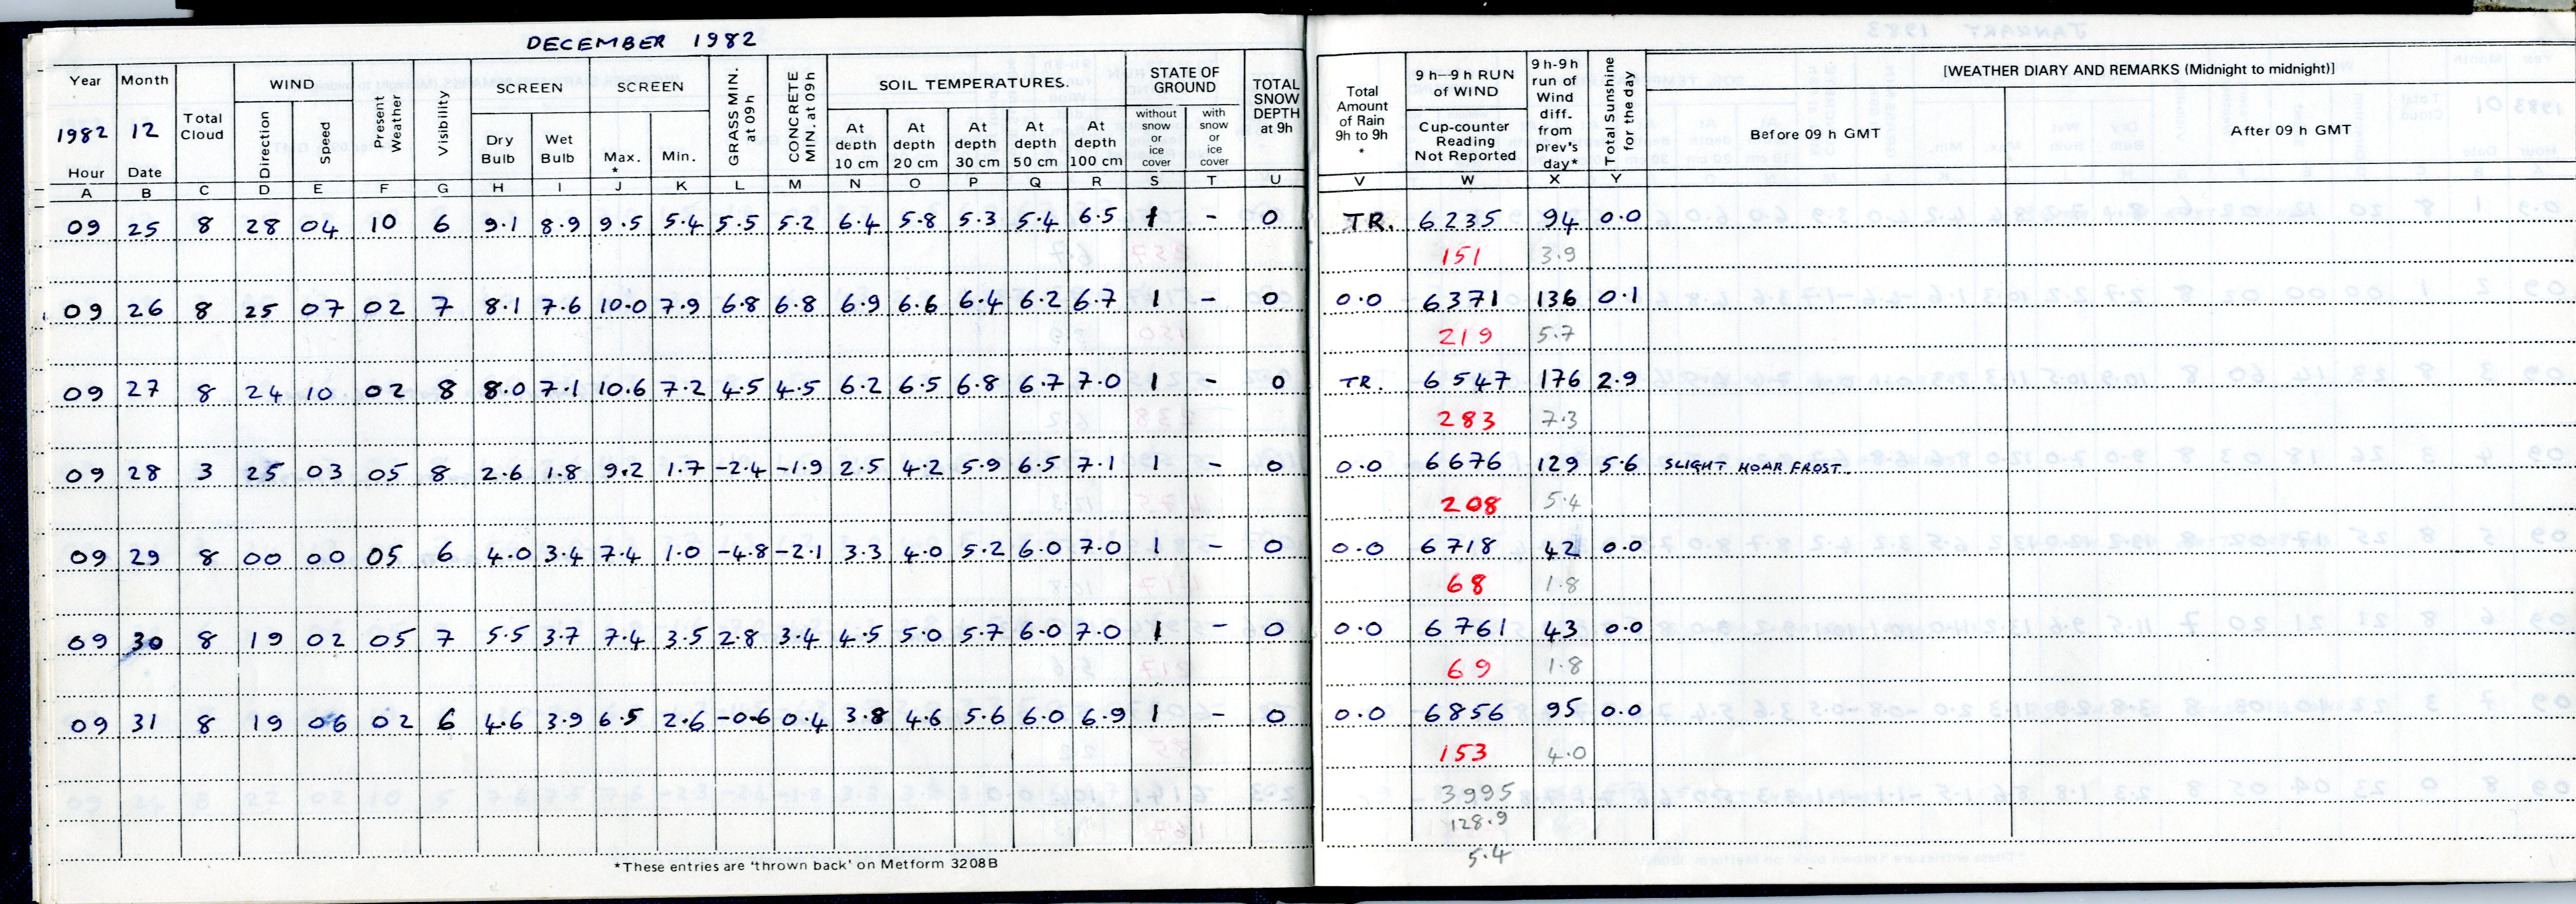 DECEMBER 1982
Year Month Total Cloud WIND Present Weather Visibility SCREEN SCREEN GRASS MIN. at 09h CONCRETE MIN. at 09h SOIL TEMPERATURES. STATE OF GROUND TOTAL SNOW DEPTH at 9h Total Amount of Rain 9h to 9h * 9 h—9 h RUN of WIND 9 h-9 h run of Wind diff. from prev's day* Total Sunshine for the day [WEATHER DIARY AND REMARKS (Midnight to midnight)]
1982 12 Direction Speed Dry Bulb Wet Bulb Max. * Min. At depth 10 cm At depth 20 cm At depth 30 cm At depth 50 cm At depth 100 cm without snow or ice cover with snow or ice cover Cup-counter Reading Not Reported Before 09 h GMT After 09 h GMT
Hour Date
A B C D E F G H I J K L M N O P Q R S T U V W X Y
09 25 8 28 04 10 6 9.1 8.9 9.5 5.4 5.5 5.2 6.4 5.8 5.3 5.4 6.5 1 - 0 TR. 6235 94 0.0
151 3.9
09 26 8 25 07 02 7 8.1 7.6 10.0 7.9 6.8 6.8 6.9 6.6 6.4 6.2 6.7 1 - 0 0.0 6371 136 0.1
219 5.7
09 27 8 24 10 02 8 8.0 7.1 10.6 7.2 4.5 4.5 6.2 6.5 6.8 6.7 7.0 1 - 0 TR. 6547 176 2.9
283 7.3
09 28 3 25 03 05 8 2.6 1.8 9.2 1.7 -2.4 -1.9 2.5 4.2 5.9 6.5 7.1 1 - 0 0.0 6676 129 5.6 SLIGHT HOAR FROST.
208 5.4
09 29 8 00 00 05 6 4.0 3.4 7.4 1.0 -4.8 -2.1 3.3 4.0 5.2 6.0 7.0 1 - 0 0.0 6718 42 0.0
68 1.8
09 30 8 19 02 05 7 5.5 3.7 7.4 3.5 2.8 3.4 4.5 5.0 5.7 6.0 7.0 1 - 0 0.0 6761 43 0.0
69 1.8
09 31 8 19 06 02 6 4.6 3.9 6.5 2.6 -0.6 0.4 3.8 4.6 5.6 6.0 6.9 1 - 0 0.0 6856 95 0.0
153 4.0
3995
128.9
5.4
*These entries are 'thrown back' on Metform 3208B